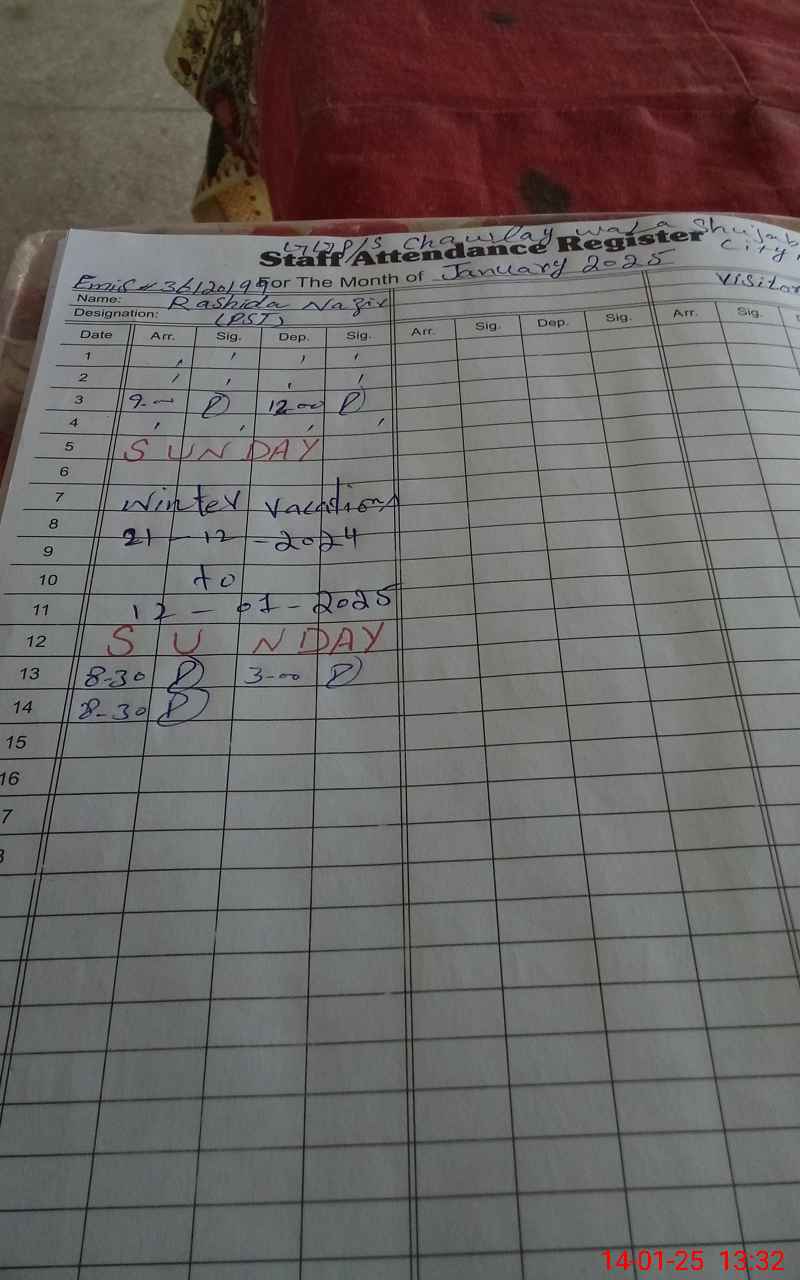 P/S Chawlay wala Shujab
City,
Staff Attendance Register
Emis # For The Month of January 2025
Name: Rashida Nazir Visitor
Designation: (PST)
Date Arr. Sig. Dep. Sig. Arr. Sig. Dep. Sig. Arr. Sig.
1 , , , ,
2 , , , ,
3 9-00 P 12-00 P
4 , , , ,
5 SUNDAY
6
7 Winter Vacations
8
9 21-12-2024
10 to
11 12-01-2025
12 SUNDAY
13 8-30 P 3-00 P
14 8-30 P
15
16
7
14-01-25 13:32